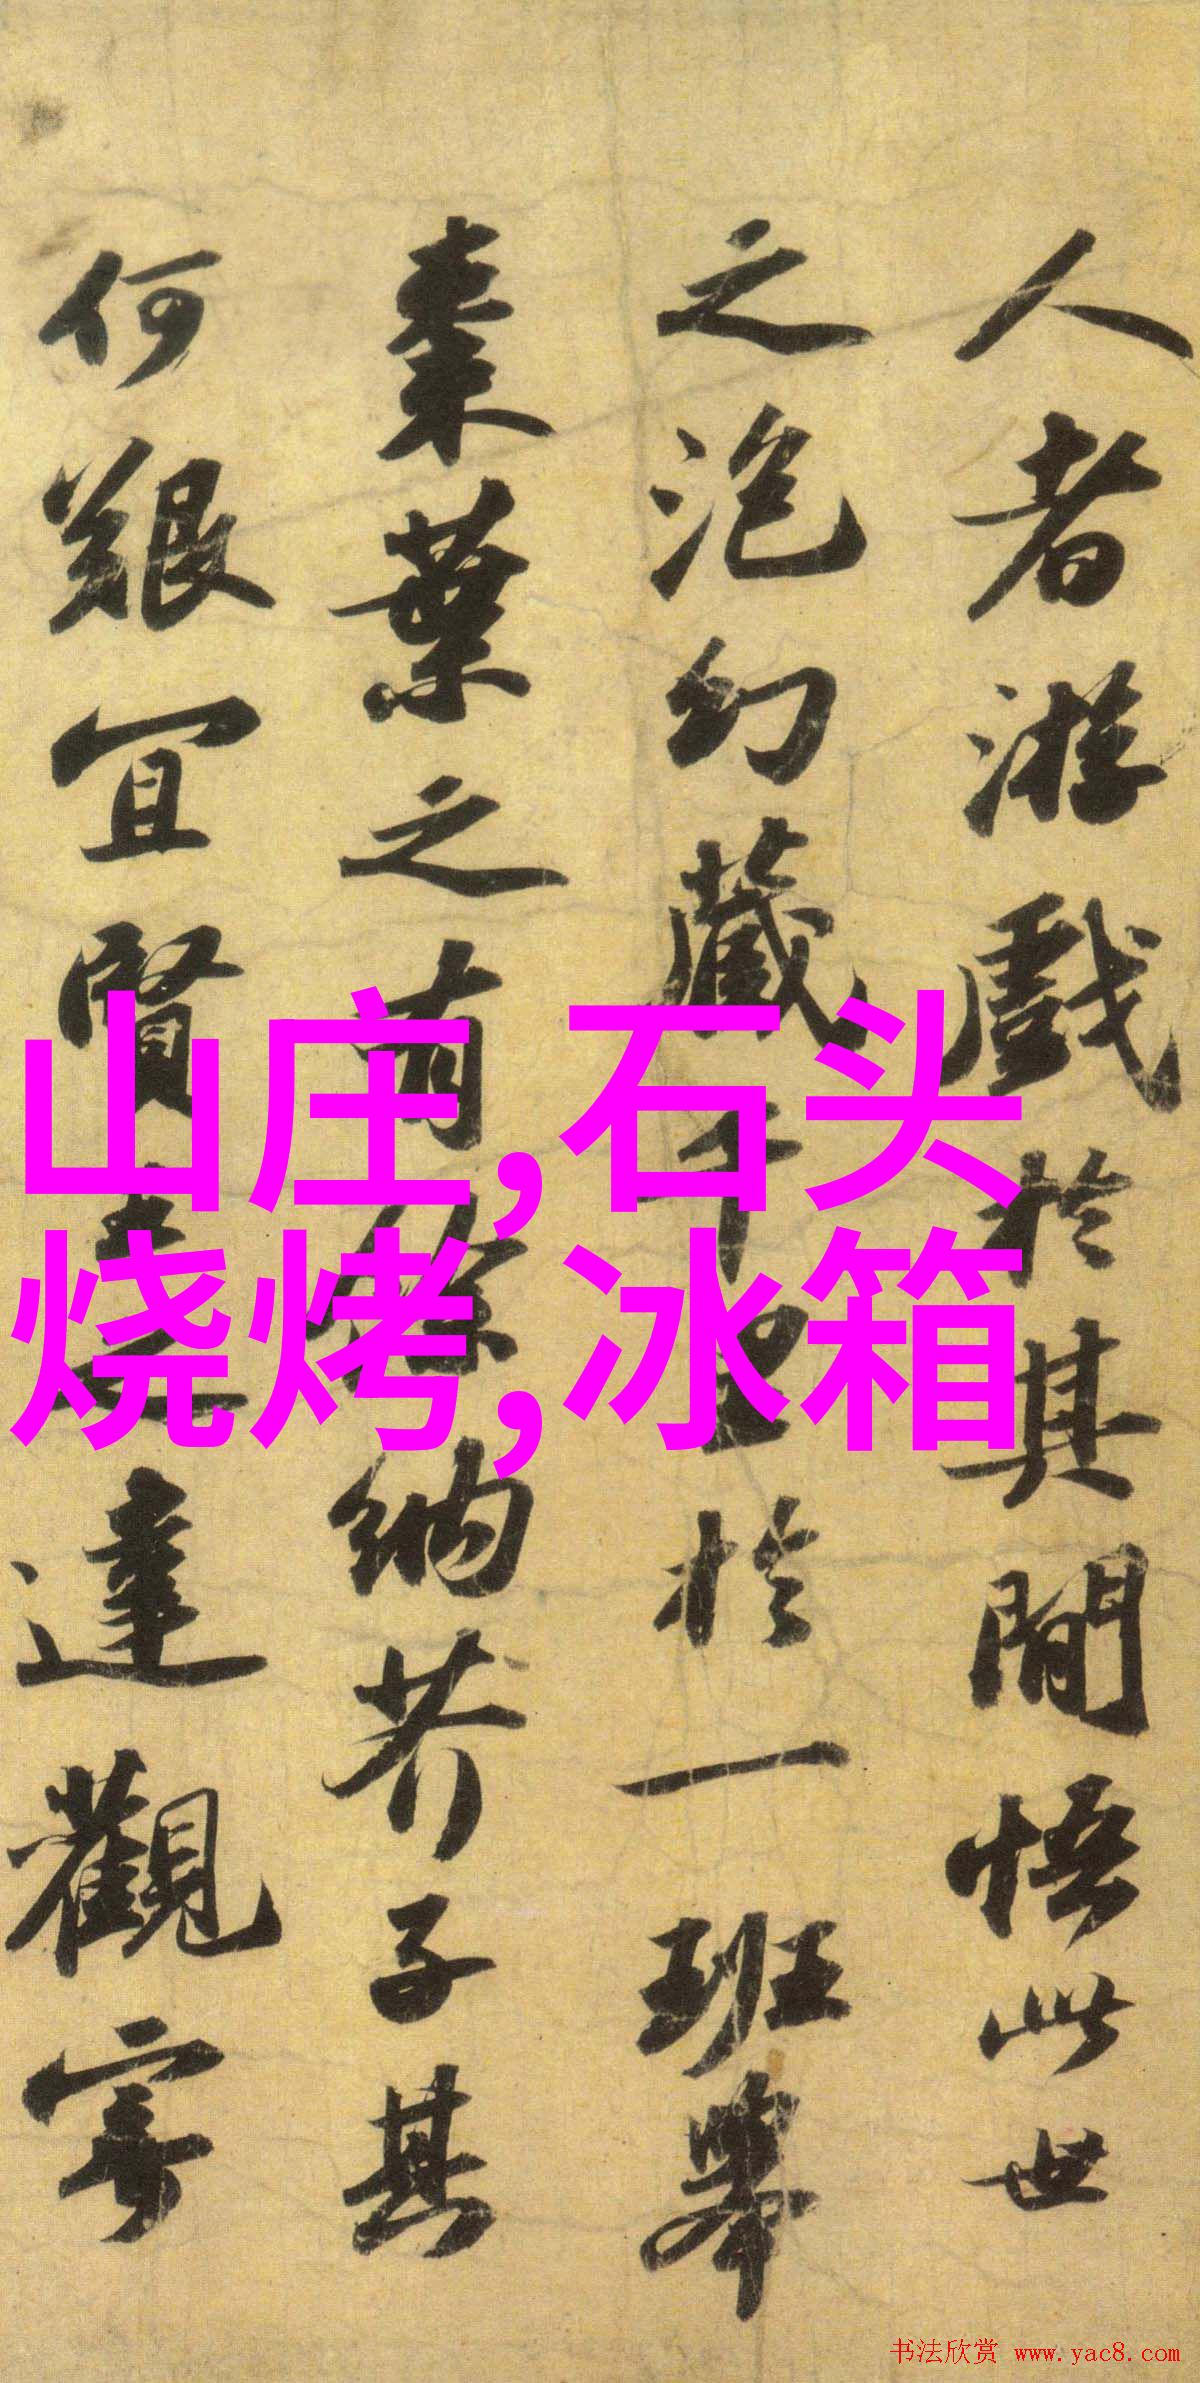 人者游戲於其閒悟此世
之泡幻藏千里於一班舉
棗葉之有餘納芥子其
何艱宜賢王之達觀寄
山庄,石头
烧烤,冰箱
书法欣赏 www.yac8.com